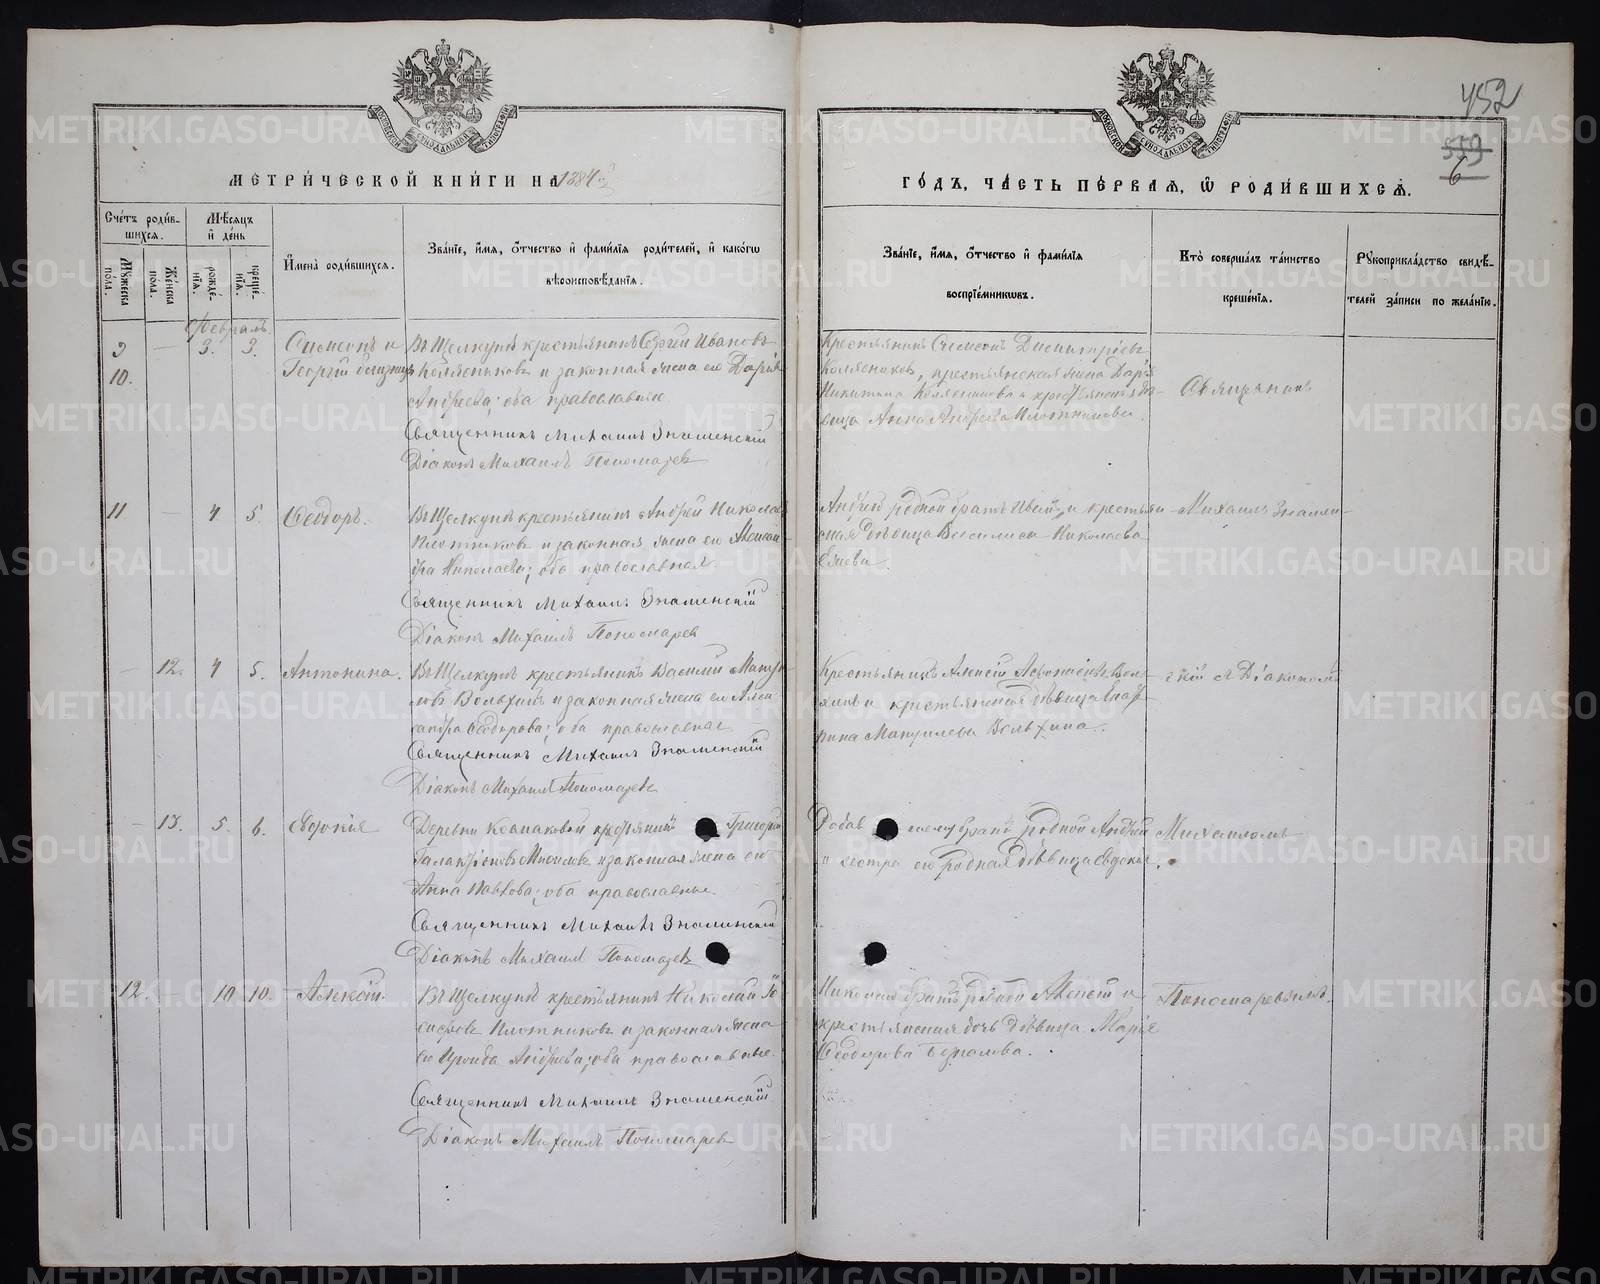 МОСКОВСКОЙ СѴНОДАЛЬНОЙ ТИПОГРАФІИ
МОСКОВСКОЙ СѴНОДАЛЬНОЙ ТИПОГРАФІИ
452
559
6
МЕТРИ́ЧЕСКОЙ КНИ́ГИ НА 1884
ГО́ДЪ, ЧА́СТЬ ПЕ́РВАЯ, Ѿ РОДИ́ВШИХСЯ.
Сче́тъ роди́в-
шихся.
Му́жеска по́ла.
Же́нска по́ла.
Мѣ́сяцъ
и҆ де́нь
рожде́-
нїя.
креще́-
нїя.
И҆мена̀ роди́вшихся.
Зва́нїе, и҆́мя, ѻ҆́тчество и҆ фами́лїя роди́телей, и҆ како́гѡ
вѣроисповѣ́данїя.
Зва́нїе, и҆́мя, ѻ҆́тчество и҆ фами́лїя
воспрїе́мникѡвъ.
Кто̀ соверша́лъ та́инство
креще́нїя.
Рꙋкоприкла́дство свидѣ́-
телей за́писи по жела́нїю.
Февраль.
9 — 3. 3. Симеонъ и
10. Георгій близнецы
Въ Щелкунѣ крестьянинъ Сергій Ивановъ
Колясниковъ и законная жена его Дарія
Андреева; оба православные
Священникъ Михаилъ Знаменскій
Діаконъ Михаилъ Пономаревъ
Крестьянинъ Симеонъ Димитріевъ
Колясниковъ, крестьянская жена Дарія
Никитина Колясникова и крестьянская дѣ-
вица Анна Андреева Плотникова.
Священникъ
11 — 4 5. Ѳеодоръ.
Въ Щелкунѣ крестьянинъ Андрей Николаевъ
Плотниковъ и законная жена его Алексан-
дра Николаева; оба православные.
Священникъ Михаилъ Знаменскій
Діаконъ Михаилъ Пономаревъ
Андрею родной братъ Иванъ и крестьян-
ская дѣвица Василиса Николаева
Михаилъ Знамен-
— 12. 4 5. Антонина.
Въ Щелкунѣ крестьянинъ Василій Мануи-
ловъ Вольхинъ и законная жена его Алек-
сандра Ѳеодорова; оба православные
Священникъ Михаилъ Знаменскій
Діаконъ Михаилъ Пономаревъ
Крестьянинъ Алексій Аѳонасіевъ Воль-
хинъ и крестьянская дѣвица Екате-
рина Мануилова Вольхина.
скій съ Діакономъ
— 13. 5. 6. Евдокія
Деревни Колпаковой крестьянинъ Григорій
Галактіоновъ и законная жена его
Анна Павлова; оба православные.
Священникъ Михаилъ Знаменскій
Діаконъ Михаилъ Пономаревъ
братъ родной Андрей
и сестра его родная дѣвица Евдокія.
Михаиломъ
12. 10 10. Алексій.
Въ Щелкунѣ крестьянинъ Николай Іо-
сифовъ Плотниковъ и законная жена
его Ираида Андреева; оба православные.
Священникъ Михаилъ Знаменскій
Діаконъ Михаилъ Пономаревъ
Николаю братъ родной Алексій и
крестьянская дочь дѣвица Марія
Ѳеодорова
Пономаревымъ.
METRIKI.GASO-URAL.RU